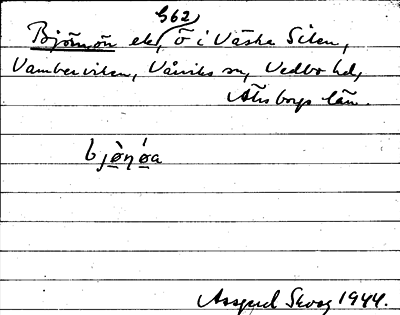 562
Björnön ek, ö i Västra Silen,
Vamberviken, Vårviks sn, Vedbo hd,
Älvsborgs län.
bjø̀ṇǿa
Assgerd Skoog 1944.